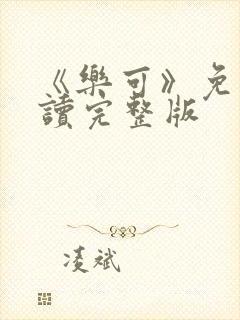 《樂可》免
讀完整版
凌斌